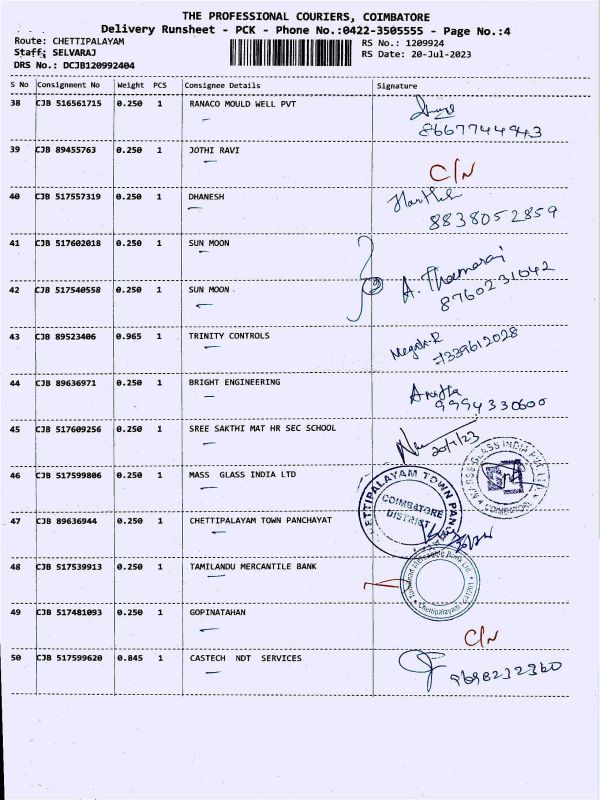 THE PROFESSIONAL COURIERS, COIMBATORE
Delivery Runsheet - PCK - Phone No.:0422-3505555 - Page No.:4
Route: CHETTIPALAYAM RS No.: 1209924
Staff: SELVARAJ RS Date: 20-Jul-2023
DRS No.: DCJB120992404
S No Consignment No Weight PCS Consignee Details Signature
38 CJB 516561715 0.250 1 RANACO MOULD WELL PVT
8667744943
39 CJB 89455763 0.250 1 JOTHI RAVI
C/N
40 CJB 517557319 0.250 1 DHANESH
8838052859
41 CJB 517602018 0.250 1 SUN MOON
A. Thamarai
42 CJB 517540558 0.250 1 SUN MOON
8760231042
43 CJB 89523406 0.965 1 TRINITY CONTROLS
7339612028
44 CJB 89636971 0.250 1 BRIGHT ENGINEERING
9994330600
45 CJB 517609256 0.250 1 SREE SAKTHI MAT HR SEC SCHOOL
20/7/23
46 CJB 517599806 0.250 1 MASS GLASS INDIA LTD
COIMBATORE
DISTRICT
47 CJB 89636944 0.250 1 CHETTIPALAYAM TOWN PANCHAYAT
48 CJB 517539913 0.250 1 TAMILANDU MERCANTILE BANK
Chettipalayam
49 CJB 517481093 0.250 1 GOPINATAHAN
C/N
50 CJB 517599620 0.845 1 CASTECH NDT SERVICES
9698232360